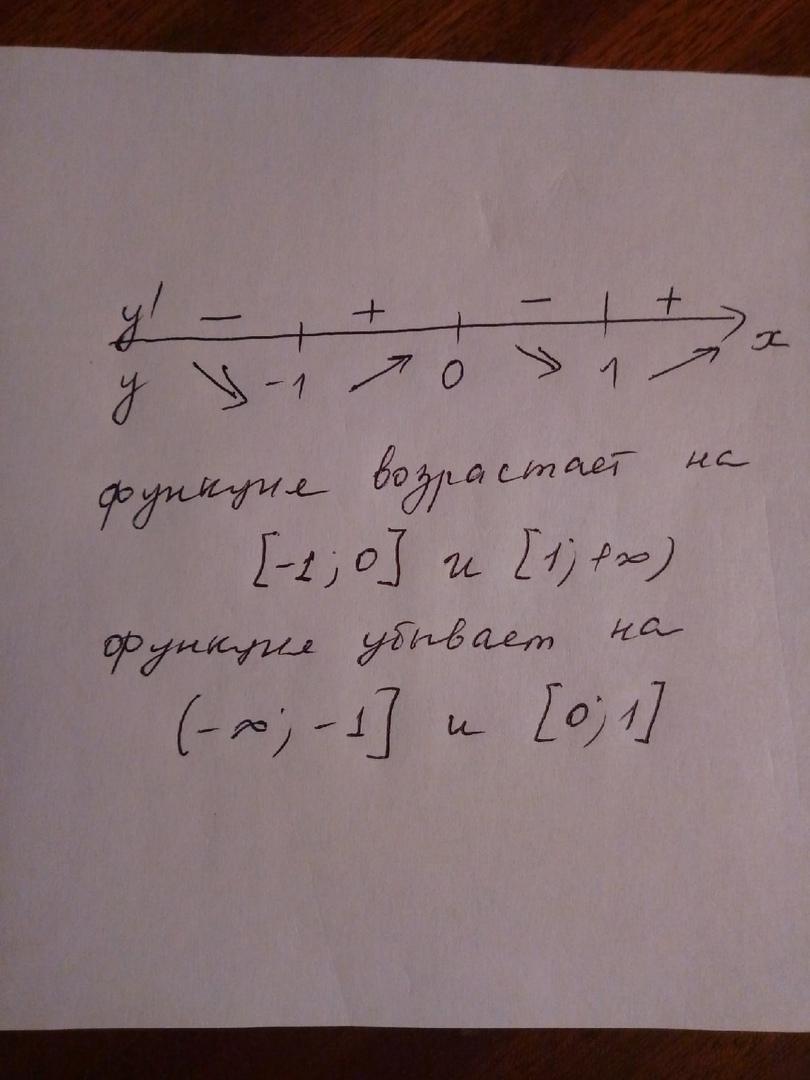 y' − + − +
x
y ↘ -1 ↗ 0 ↘ 1 ↗
функция возрастает на
[-1; 0] и [1; +∞)
функция убывает на
(-∞; -1] и [0; 1]